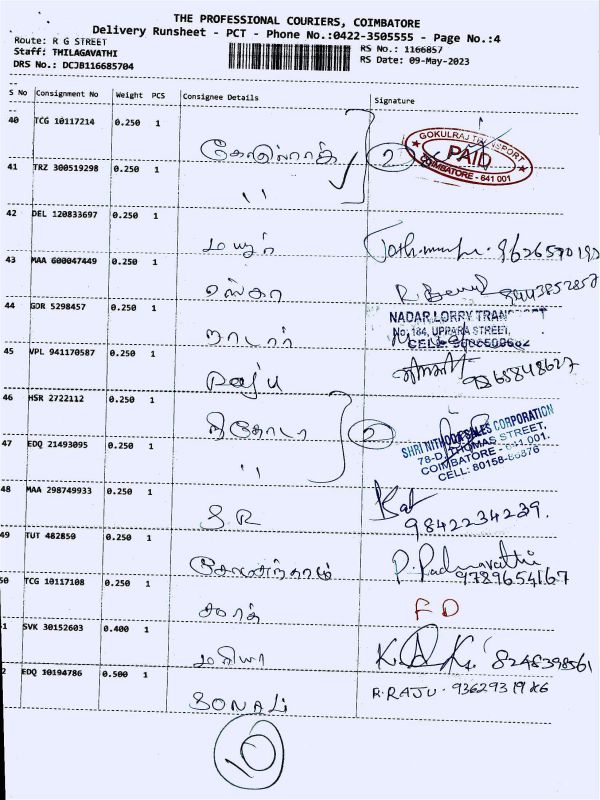 THE PROFESSIONAL COURIERS, COIMBATORE
Delivery Runsheet - PCT - Phone No.:0422-3505555 - Page No.:4
Route: R G STREET
Staff: THILAGAVATHI
DRS No.: DCJB116685704
RS No.: 1166857
RS Date: 09-May-2023
S No Consignment No Weight PCS Consignee Details Signature
40 TCG 10117214 0.250 1
2
GOKULRAJ TRANSPORT
PAID
COIMBATORE - 641 001
41 TRZ 300519298 0.250 1
"
42 DEL 120833697 0.250 1
மயூர்
43 MAA 600047449 0.250 1
எஸ்கா
44 GDR 5298457 0.250 1
நாடார்
NADAR LORRY TRANSPORT
No: 184, UPPARA STREET,
45 VPL 941170587 0.250 1
Raju
9365848627
46 HSR 2722112 0.250 1
நிதோடா 2
SHRI NITHODA SALES CORPORATION
78-D, THOMAS STREET,
COIMBATORE - 641 001.
CELL: 80158-86876
47 EDQ 21493095 0.250 1
"
48 MAA 298749933 0.250 1
S.R
9842234239.
49 TUT 482850 0.250 1
P. Padmavathi
9789654167
50 TCG 10117108 0.250 1
சரத் FD
1 SVK 30152603 0.400 1
மரியா 8248398561
2 EDQ 10194786 0.500 1
SONALi R.RAJU.
10